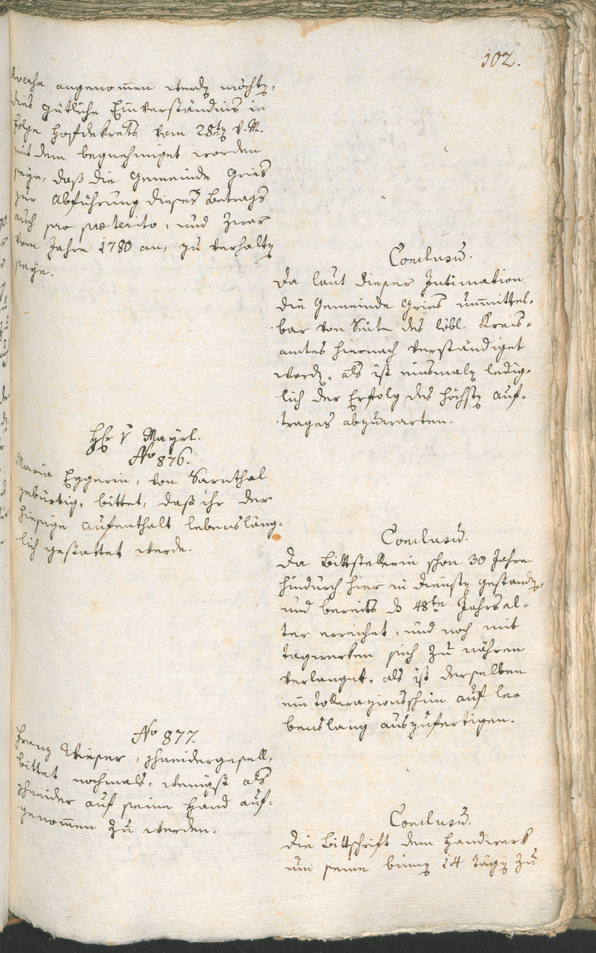 102.
angenommen werdn möchtn,
dies gütliche Einverständnis in
folge Hofdekrets vom 28tn v. M.
mit dem begnehmiget worden
seye, daß die Gemeinde Gries
zur Abführung dieses Betrags
auch pro praeterito, und zwar
vom Jahre 1780 an, zu verhaltn
seye.
Conclusum.
Da laut dieser Intimation
die Gemeinde Gries unmittel-
bar von Seite des löbl. Kreis-
amtes hiernach verständiget
wordn, als ist einsmaln ledig-
lich der Erfolg des höchstn Auf-
trages abzuwarten.
Hr v Mayrl.
No 876.
Maria Eggerin, von Sarnthal
gebürtig, bittet, daß ihr der
hiesige Aufenthalt lebensläng-
lich gestattet werde.
Conclusum.
Da Bittstellerin schon 30 Jahre
hindurch hier in Dienstn gestandn,
und bereits das 48te Jahrsal-
ter erreichet, und noch mit
tagwerken sich zu nähren
verlanget, als ist derselben
ein tolerazionsschein auf le-
benslang auszufertigen.
No 877.
Franz Wieser, schneidergesell,
bittet nochmals, wenigst als
schneider auf seine Hand auf-
genommen zu werden.
Conclusum.
Die Bittschrift dem Handwerk
um seine binnen 14 Tägn zu